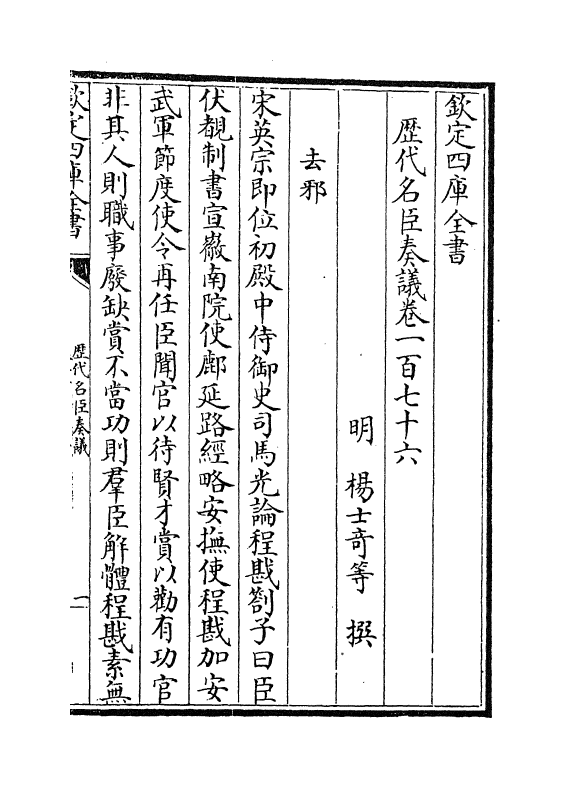 欽定四庫全書
歷代名臣奏議卷一百七十六
明 楊士竒等 撰
去邪
宋英宗即位初殿中侍御史司馬光論程戡劄子曰臣
伏覩制書宣徽南院使鄜延路經略安撫使程戡加安
武軍節度使令再任臣聞官以待賢才賞以勸有功官
非其人則職事廢缺賞不當功則羣臣解體程戡素無
欽定四庫全書
歷代名臣奏議